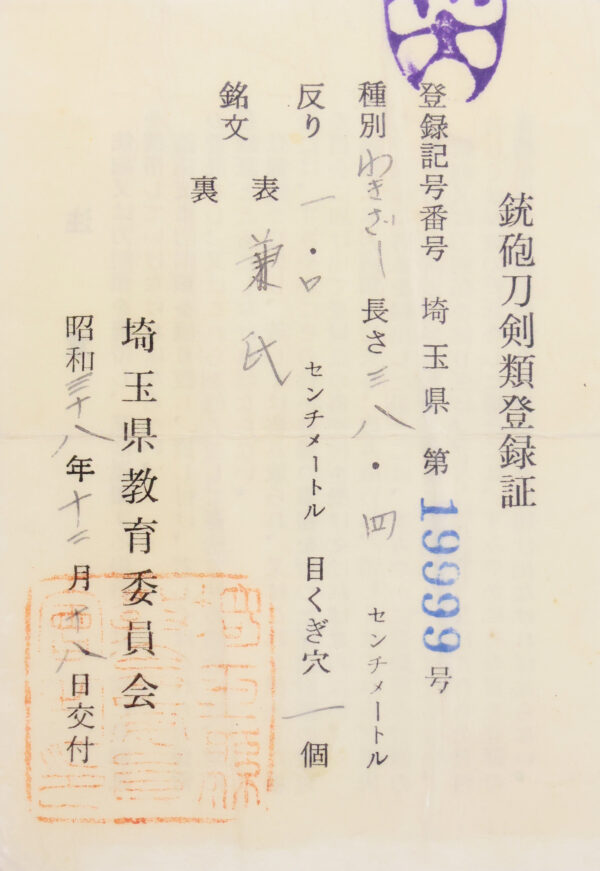 銃砲刀剣類登録証
登録記号番号 埼玉県 第19999号
種別 わきざし 長さ 三八・四 センチメートル
反り 一・〇 センチメートル 目くぎ穴 一 個
銘文 表 兼氏
裏
埼玉県教育委員会
昭和三十八年十二月十八日交付